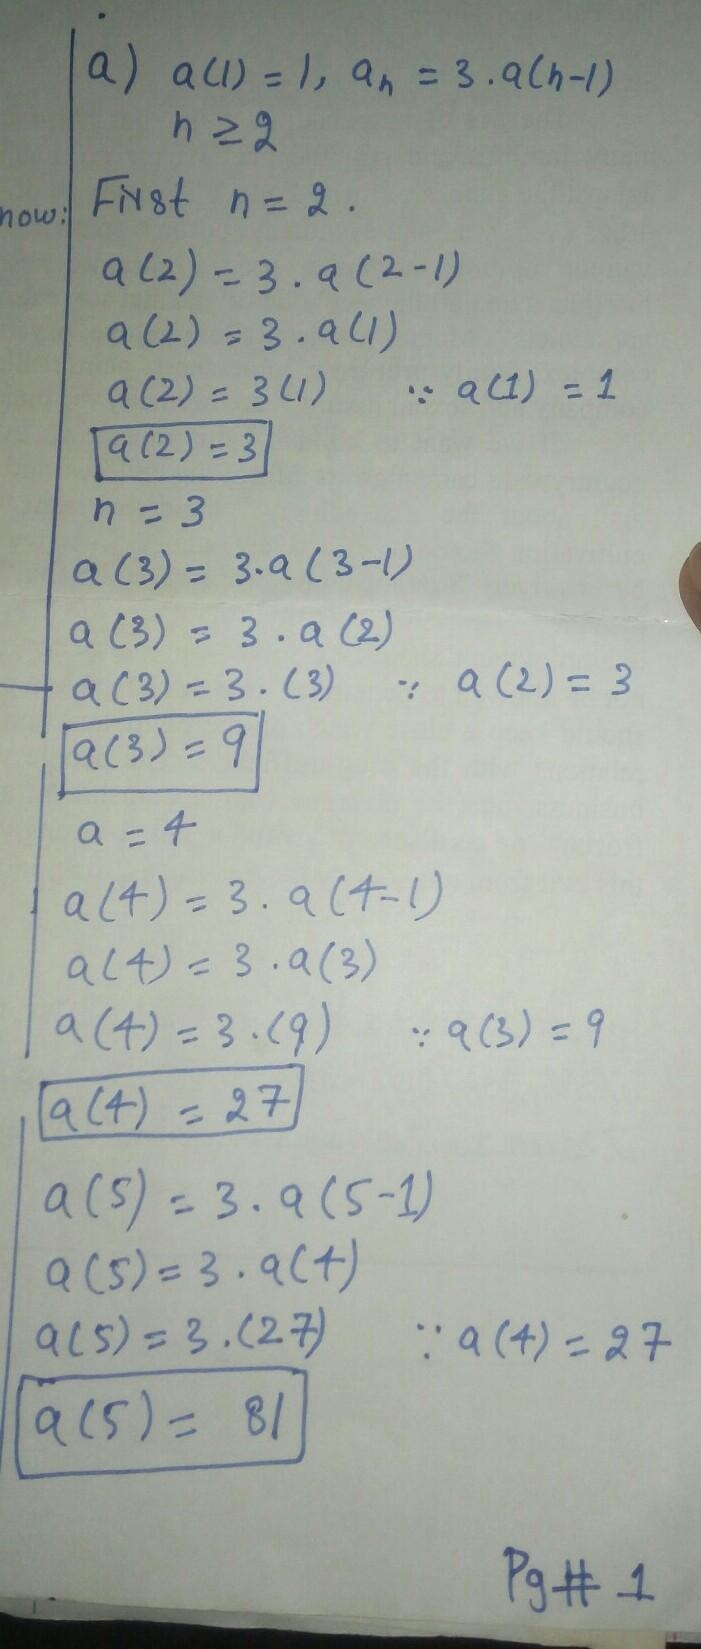 a) a(1) = 1, aₙ = 3.a(n-1)
n ≥ 2
now: First n = 2.
a(2) = 3.a(2-1)
a(2) = 3.a(1)
a(2) = 3(1) ∵ a(1) = 1
a(2) = 3
n = 3
a(3) = 3.a(3-1)
a(3) = 3.a(2)
a(3) = 3.(3) ∵ a(2) = 3
a(3) = 9
a = 4
a(4) = 3.a(4-1)
a(4) = 3.a(3)
a(4) = 3.(9) ∵ a(3) = 9
a(4) = 27
a(5) = 3.a(5-1)
a(5) = 3.a(4)
a(5) = 3.(27) ∵ a(4) = 27
a(5) = 81
Pg# 1